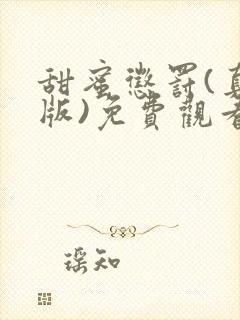 甜蜜懲罰(
版)免費觀看
瑶知